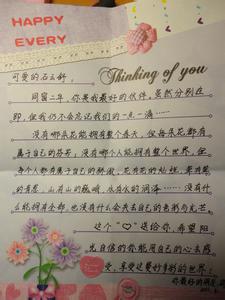 HAPPY
EVERY
Thinking of you
可爱的石云舒：
同窗二年，你是我最好的伙伴，虽然分别在
即，但我仍不会忘记我们的一点一滴……
没有哪朵花能拥有整个春天，但每朵花都有
属于自己的芬芳，没有哪个人能拥有整个世界，但
每个人都有属于自己的骄傲，花有花的灿烂，草有草
的青葱，山有山的巍峨，水有水的润泽……没有什
么能拥有全部，也没有什么会失去自己的色彩与光芒
这个“♡”送给你，希望阳
光自信的你能用自己的心去感
受，享受这美好多彩的世界！
你最好的朋友